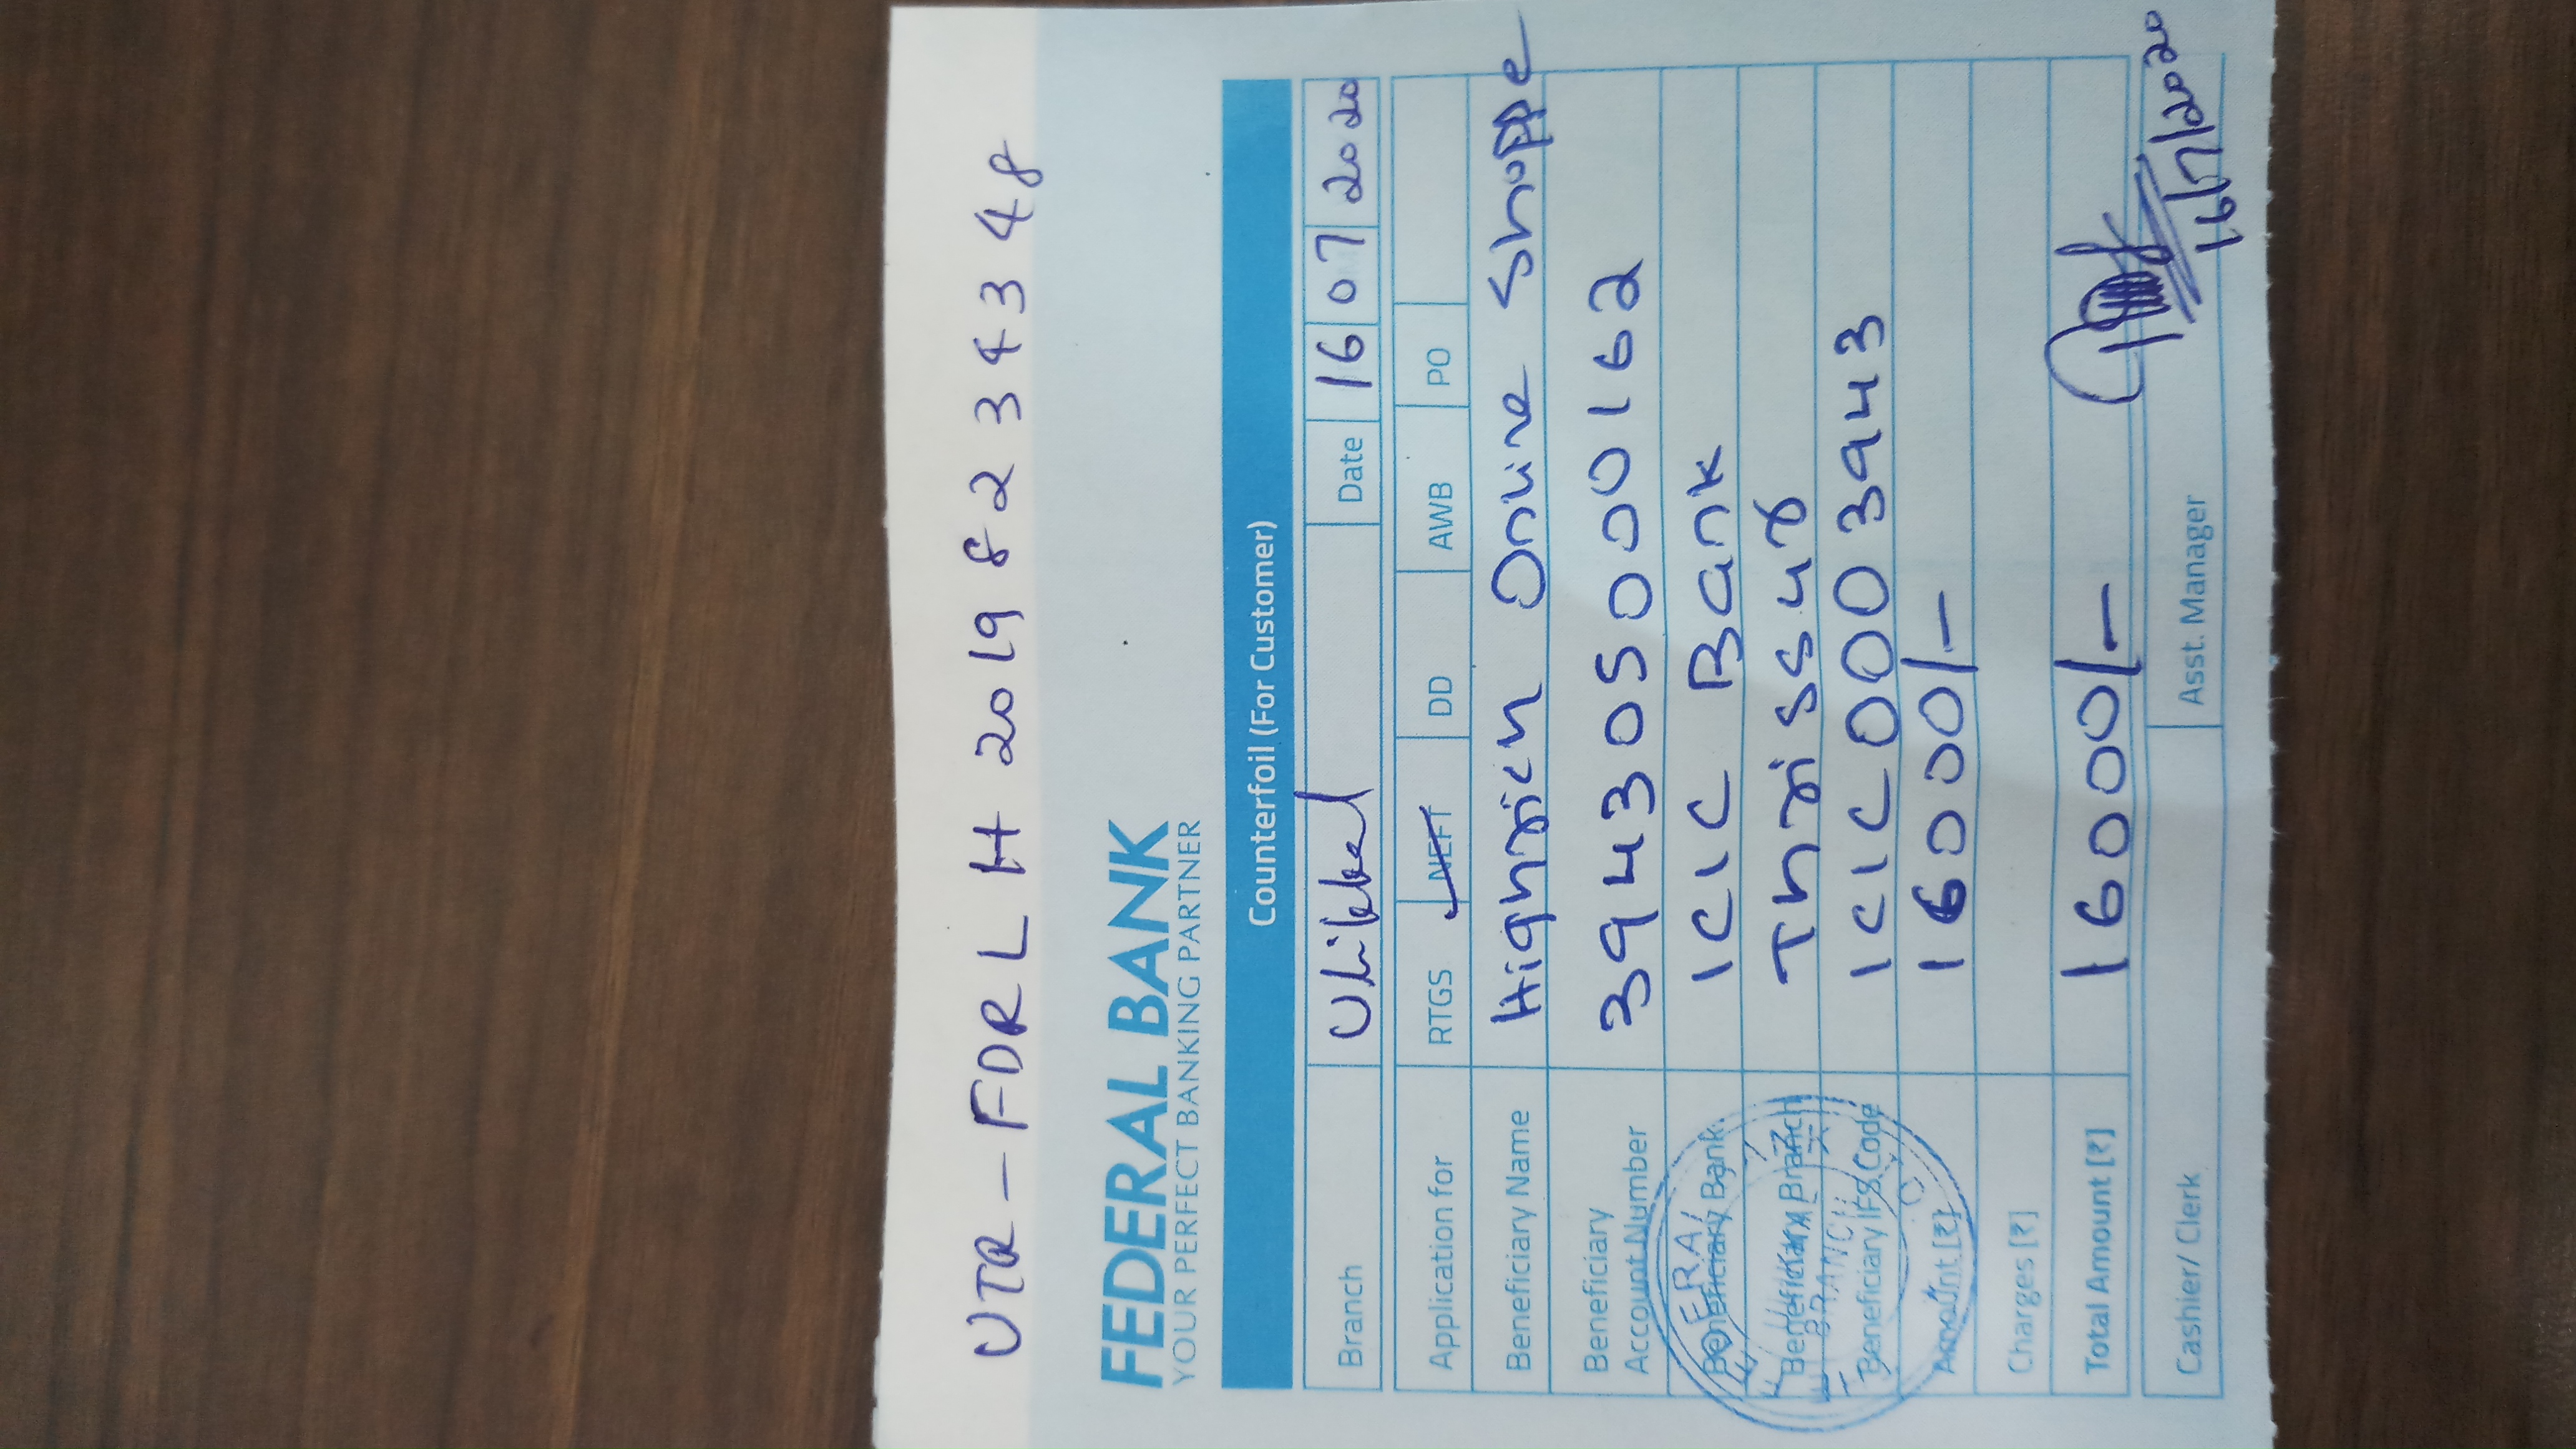 UTR - FDRLH2019823 43 48
FEDERAL BANK
YOUR PERFECT BANKING PARTNER
Counterfoil (For Customer)
Branch Ulikkal Date 16 07 2020
Application for RTGS NEFT DD AWB PO
Beneficiary Name Highrich Online Shoppe
Beneficiary Account Number 394305000162
Beneficiary Bank ICIC Bank
Beneficiary Branch Thrissur
Beneficiary IFS Code ICIC0003943
Amount [₹] 16000/-
Charges [₹]
Total Amount [₹] 16000/-
Cashier/ Clerk Asst. Manager
16/7/2020